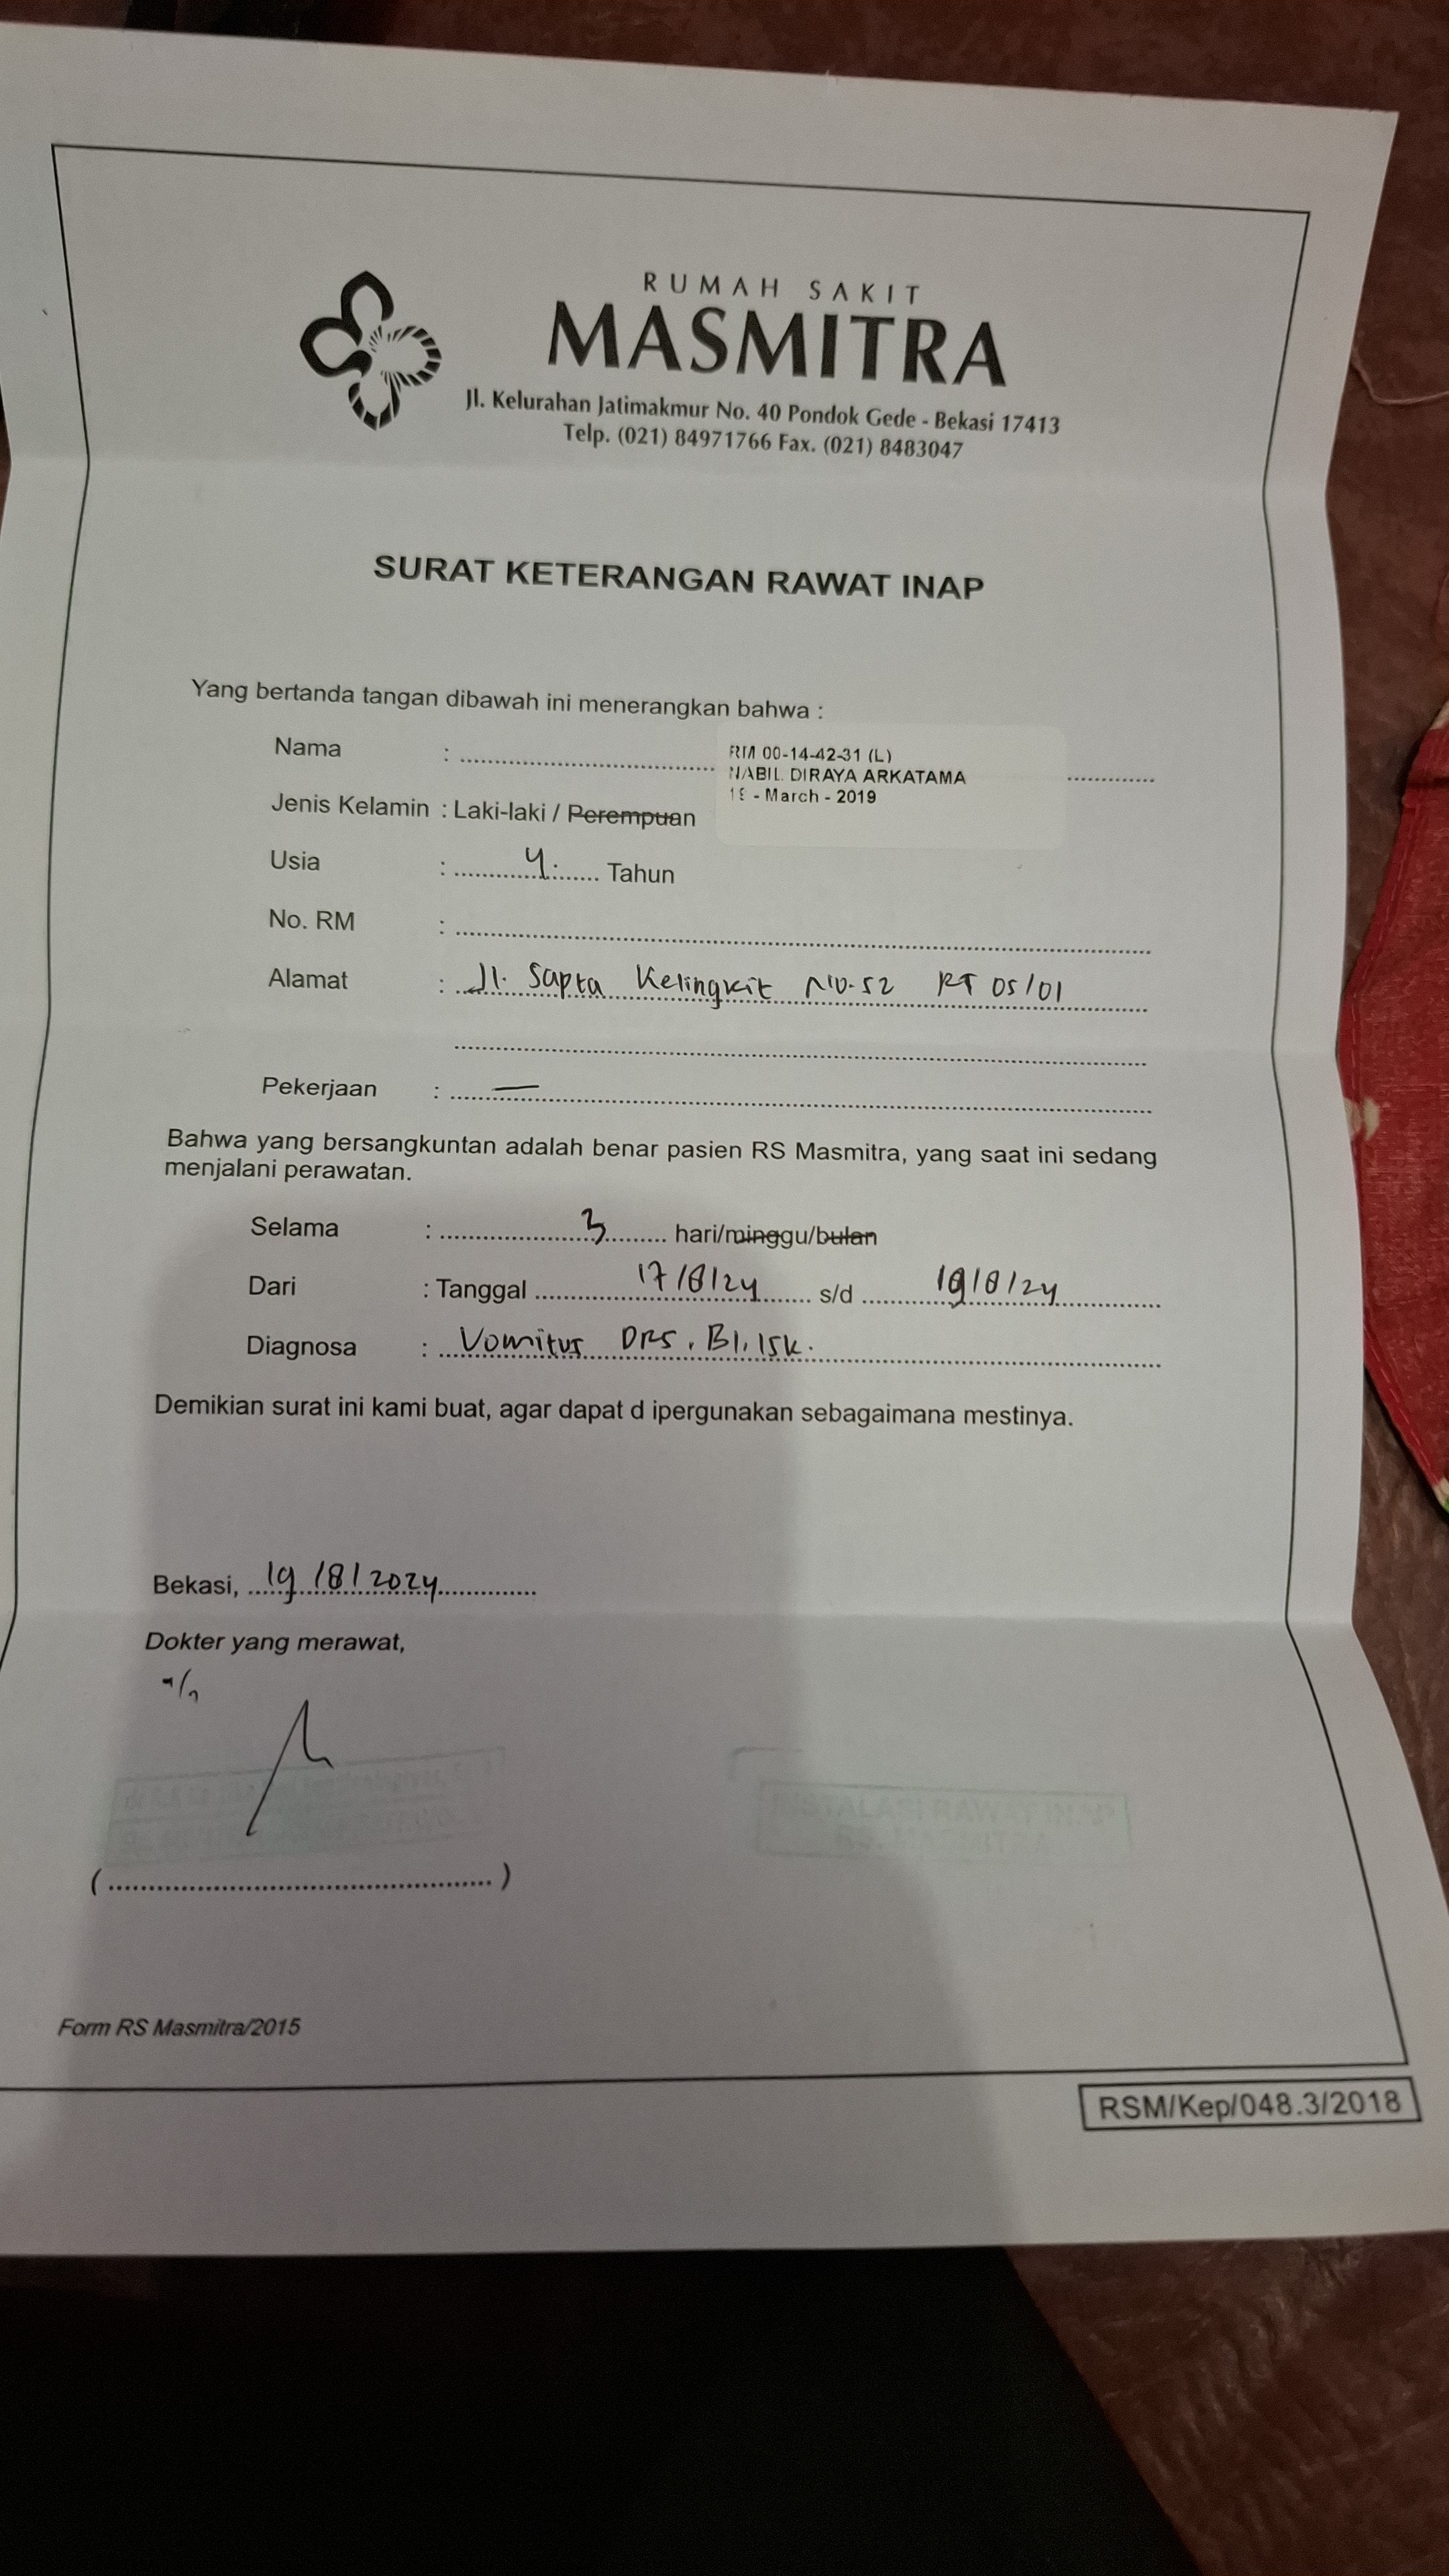 RUMAH SAKIT
MASMITRA
Jl. Kelurahan Jatimakmur No. 40 Pondok Gede - Bekasi 17413
Telp. (021) 84971766 Fax. (021) 8483047
SURAT KETERANGAN RAWAT INAP
Yang bertanda tangan dibawah ini menerangkan bahwa :
Nama : RM 00-14-42-31 (L)
NABIL DIRAYA ARKATAMA
- March - 2019
Jenis Kelamin : Laki-laki / Perempuan
Usia : 4 Tahun
No. RM :
Alamat : Jl. Sapta Kelingkit No. 52 RT 05/01
Pekerjaan : —
Bahwa yang bersangkuntan adalah benar pasien RS Masmitra, yang saat ini sedang
menjalani perawatan.
Selama : 3 hari/minggu/bulan
Dari : Tanggal 17/8/24 s/d 19/8/24
Diagnosa : Vomitus DRS, B1, ISK.
Demikian surat ini kami buat, agar dapat d ipergunakan sebagaimana mestinya.
Bekasi, 19/8/2024
Dokter yang merawat,
(
)
INSTALASI RAWAT INAP
RS. MASMITRA
Form RS Masmitra/2015
RSM/Kep/048.3/2018